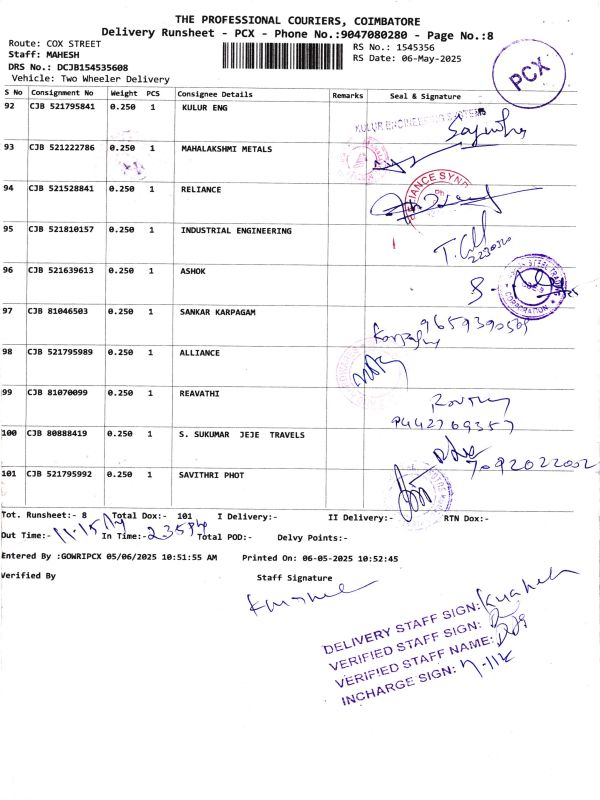 THE PROFESSIONAL COURIERS, COIMBATORE
Delivery Runsheet - PCX - Phone No.:9047080280 - Page No.:8
Route: COX STREET
RS No.: 1545356
Staff: MAHESH
RS Date: 06-May-2025
DRS No.: DCJB154535608
Vehicle: Two Wheeler Delivery
PCX
S No Consignment No Weight PCS Consignee Details Remarks Seal & Signature
92 CJB 521795841 0.250 1 KULUR ENG
KULUR ENGINEERING SYSTEMS
93 CJB 521222786 0.250 1 MAHALAKSHMI METALS
94 CJB 521528841 0.250 1 RELIANCE
95 CJB 521810157 0.250 1 INDUSTRIAL ENGINEERING
96 CJB 521639613 0.250 1 ASHOK
97 CJB 81046503 0.250 1 SANKAR KARPAGAM
98 CJB 521795989 1 ALLIANCE
0.250
99 CJB 81070099 0.250 1 REAVATHI
9442769357
100 CJB 80888419 0.250 1 S. SUKUMAR JEJE TRAVELS
7092022002
101 CJB 521795992 0.250 1 SAVITHRI PHOT
Tot. Runsheet:- 8 Total Dox:- 101 I Delivery:- II Delivery:- RTN Dox:-
Out Time:- In Time:- Total POD:- Delvy Points:-
Entered By :GOWRIPCX 05/06/2025 10:51:55 AM Printed On: 06-05-2025 10:52:45
Verified By Staff Signature
DELIVERY STAFF SIGN:
VERIFIED STAFF SIGN:
VERIFIED STAFF NAME:
INCHARGE SIGN: